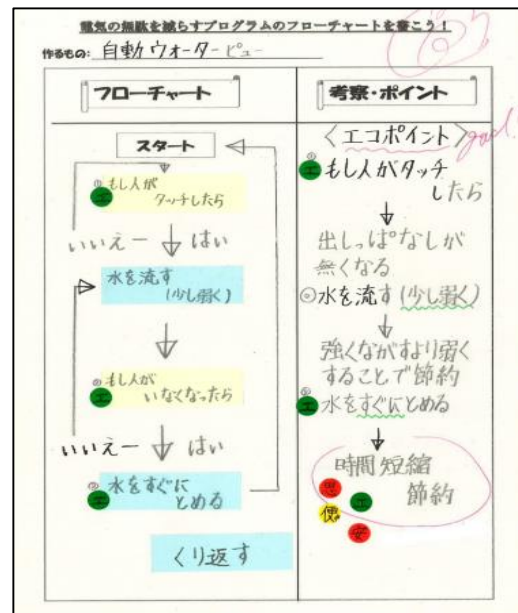 電気の無駄を減らすプログラムのフローチャートを書こう！
作るもの: 自動ウォーターピュー
フローチャート
スタート
もし人が
エ
タッチしたら
いいえー はい
水を流す
(少し弱く)
もし人が
エ
いなくなったら
いいえー はい
水をすぐに
エ
とめる
くり返す
考察・ポイント
〈エコポイント〉
good!
エ もし人がタッチ
したら
出しっぱなしが
無くなる
◎水を流す(少し弱く)
強くながすより弱く
することで節約
エ 水をすぐにとめる
時間短縮
節約
思
エ
便
安